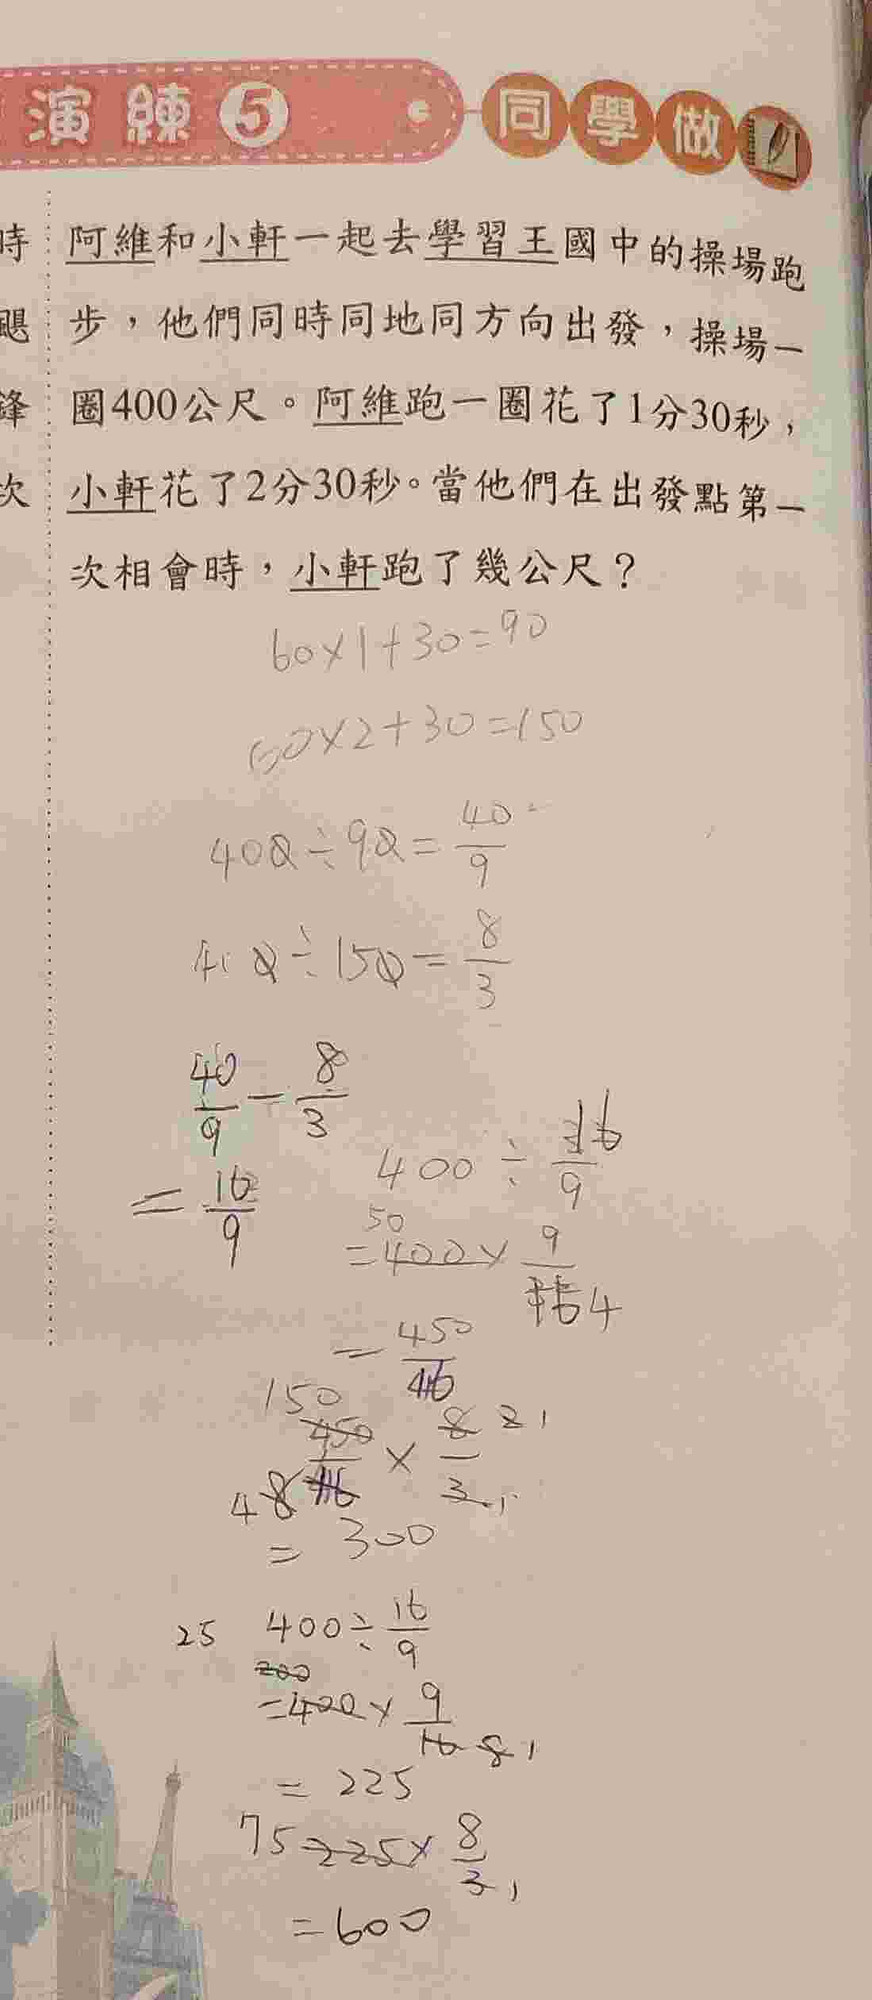 演練5 同學做
時 阿維和小軒一起去學習王國中的操場跑
步，他們同時同地同方向出發，操場一
鋒 圈400公尺。阿維跑一圈花了1分30秒，
次 小軒花了2分30秒。當他們在出發點第一
次相會時，小軒跑了幾公尺？
60×1+30=90
60×2+30=150
400÷90=40/9
400÷150=8/3
40/9-8/3
=16/9
400÷16/9
50
=400×9/16 4
=450/4
150
450/16×8/3 2 1
4 8
=300
25 400÷16/9
200
=400×9/16 8 1
=225
75 225×8/3 1
=600